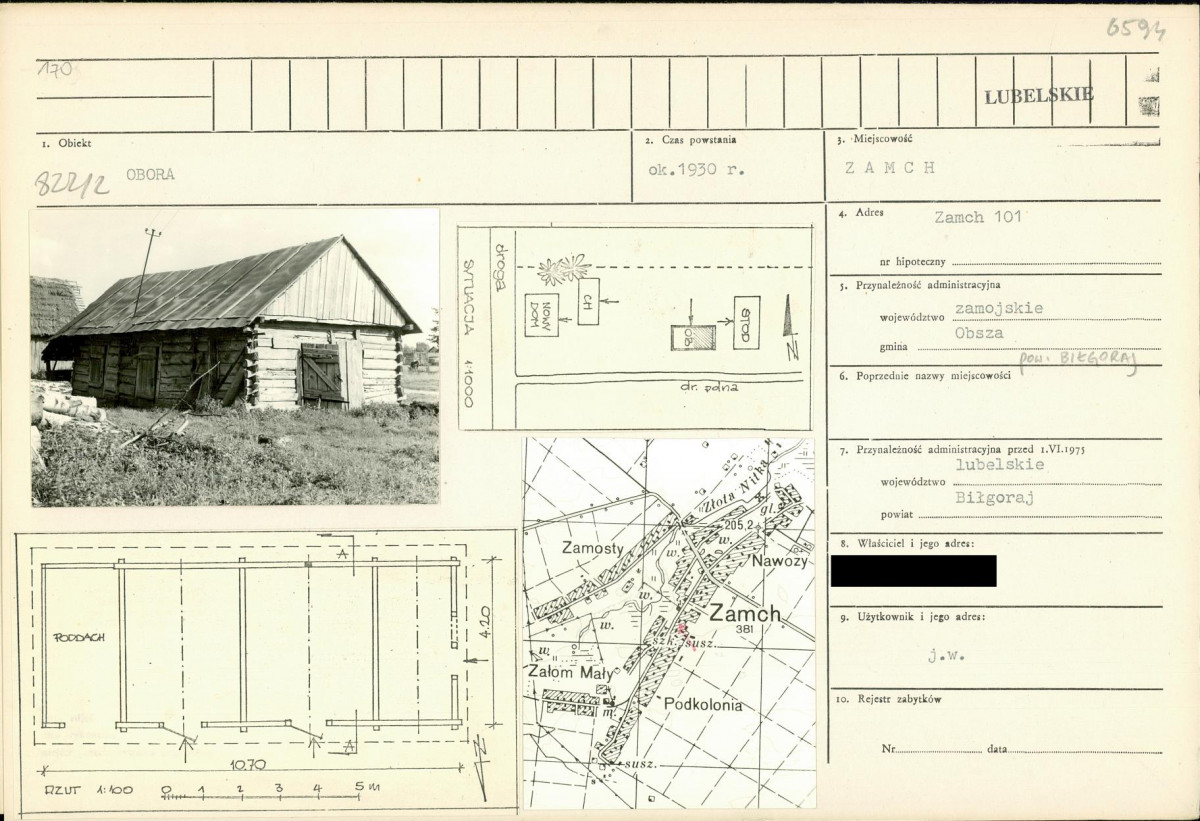 6594
170
LUBELSKIE
1. Obiekt
OBORA
822/2
2. Czas powstania
ok.1930 r.
3. Miejscowość
ZAMCH
4. Adres
Zamch 101
nr hipoteczny
5. Przynależność administracyjna
województwo zamojskie
gmina Obsza
pow. BIŁGORAJ
6. Poprzednie nazwy miejscowości
7. Przynależność administracyjna przed 1.VI.1975
województwo lubelskie
powiat Biłgoraj
8. Właściciel i jego adres:
9. Użytkownik i jego adres:
j.w.
10. Rejestr zabytków
Nr data
SYTUACJA 1:1000
droga
CH
NOWY DOM
OB
STOD
N
dr. polna
"Złota Nitka"
gl.
205,2
w.
w.
Zamosty
Nawozy
w.
Zamch
381
w.
szk.
susz.
w.
Załom Mały
m.
Podkolonia
susz.
A
PODDACH
4.20
A
10.70
N
RZUT 1:100 0 1 2 3 4 5 m